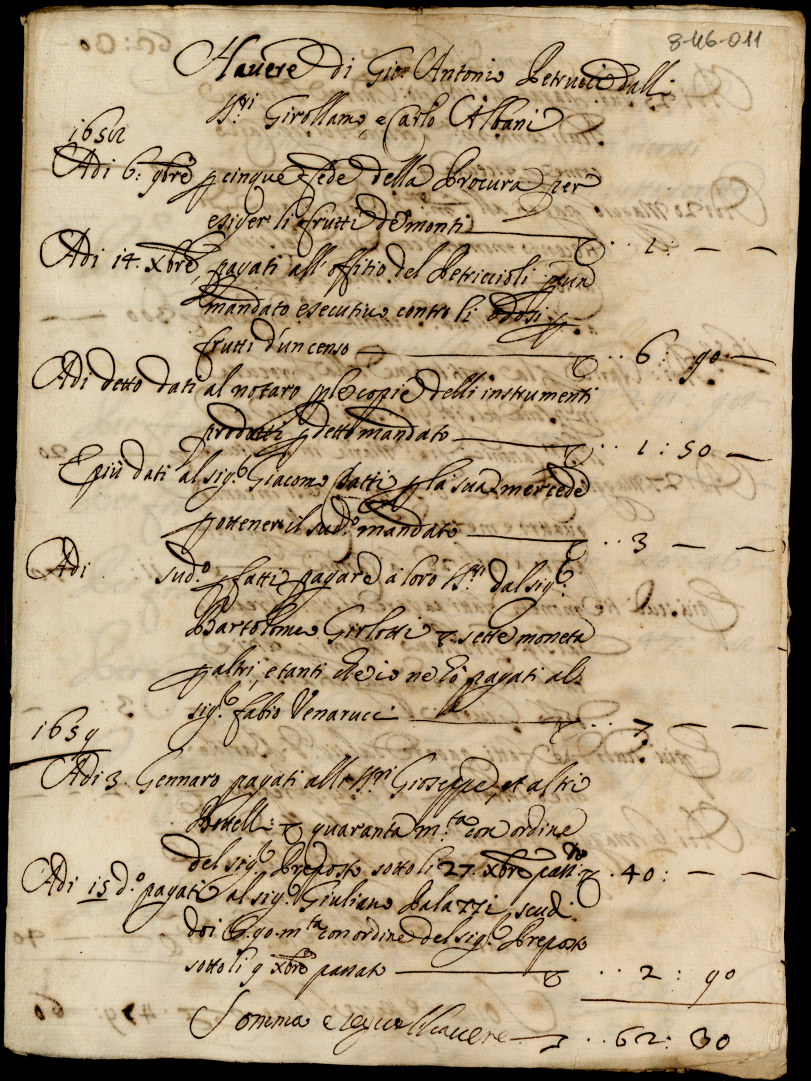 8-46-011
Hauere di Gio: Antonio Petrucci dalli
SSri Girollamo, e Carlo Albani
1658
Adi 6: 9bre p cinque fede della Procura per
esiger li frutti de monti — 1: — —
Adi 14. Xbre, pagati all'offitio del Petriccioli p un
mandato esecutiuo contro li
frutti d'un censo — 6: 90 —
Adi detto dati al notaro p le copie delli instrumenti
prodotti p detto mandato — 1: 50 —
E più dati al sigr Giacomo Gatti p la sua mercede
p ottener il sudo mandato — 3 — —
Adi sudo fatti pagare à loro SSri dal sigr
Bartolomeo sette moneta
p altri, e tanti che io ne hò pagati al
sigr Fabio Venarucci — 7 — —
1659
Adi 3. Gennaro pagati alli SSri Gioseppe, et altri
quaranta mta con ordine
del sigr Preposto sotto li 27. Xbre passto 40: — —
Adi 15 do pagati al sigr Giuliano Palazzi scudi
doi b. 90. mta con ordine del sigr Preposto
sotto li 9 Xbre passato — 2: 90
Somma e segue l'hauere — 62: 30